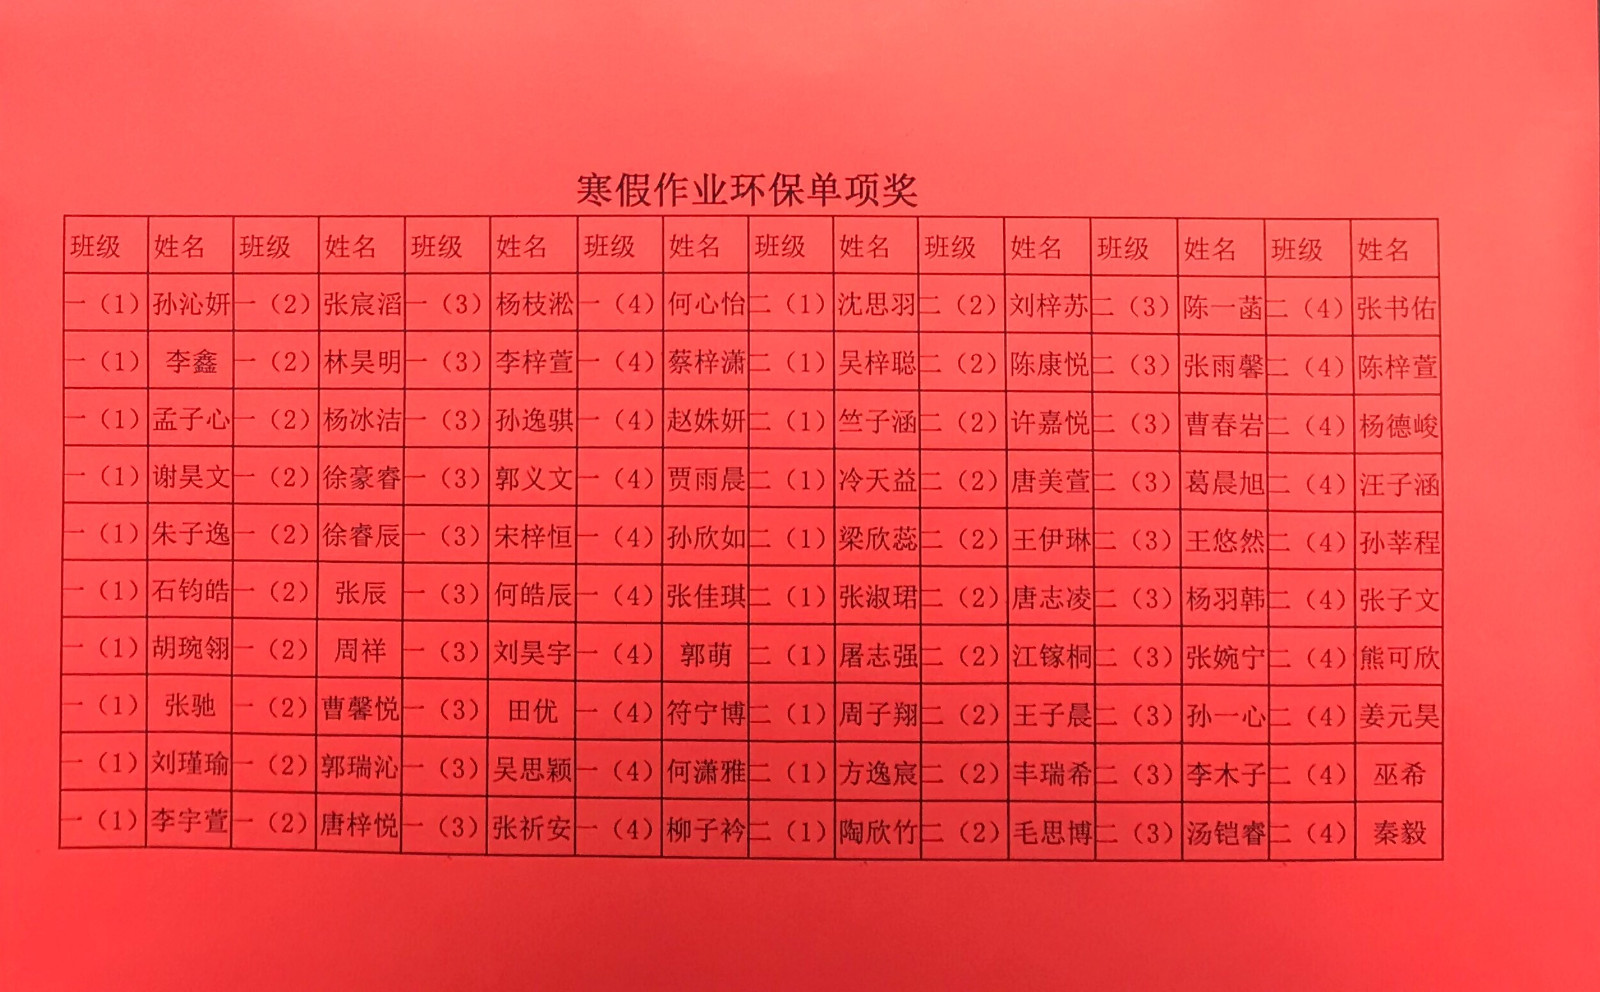 寒假作业环保单项奖
班级 姓名 班级 姓名 班级 姓名 班级 姓名 班级 姓名 班级 姓名 班级 姓名 班级 姓名
一（1） 孙沁妍 一（2） 张宸滔 一（3） 杨枝淞 一（4） 何心怡 二（1） 沈思羽 二（2） 刘梓苏 二（3） 陈一菡 二（4） 张书佑
一（1） 李鑫 一（2） 林昊明 一（3） 李梓萱 一（4） 蔡梓潇 二（1） 吴梓聪 二（2） 陈康悦 二（3） 张雨馨 二（4） 陈梓萱
一（1） 孟子心 一（2） 杨冰洁 一（3） 孙逸骐 一（4） 赵姝妍 二（1） 竺子涵 二（2） 许嘉悦 二（3） 曹春岩 二（4） 杨德峻
一（1） 谢昊文 一（2） 徐豪睿 一（3） 郭义文 一（4） 贾雨晨 二（1） 冷天益 二（2） 唐美萱 二（3） 葛晨旭 二（4） 汪子涵
一（1） 朱子逸 一（2） 徐睿辰 一（3） 宋梓恒 一（4） 孙欣如 二（1） 梁欣蕊 二（2） 王伊琳 二（3） 王悠然 二（4） 孙莘程
一（1） 石钧皓 一（2） 张辰 一（3） 何皓辰 一（4） 张佳琪 二（1） 张淑珺 二（2） 唐志凌 二（3） 杨羽韩 二（4） 张子文
一（1） 胡琬翎 一（2） 周祥 一（3） 刘昊宇 一（4） 郭萌 二（1） 屠志强 二（2） 江镓桐 二（3） 张婉宁 二（4） 熊可欣
一（1） 张驰 一（2） 曹馨悦 一（3） 田优 一（4） 符宁博 二（1） 周子翔 二（2） 王子晨 二（3） 孙一心 二（4） 姜元昊
一（1） 刘瑾瑜 一（2） 郭瑞沁 一（3） 吴思颖 一（4） 何潇雅 二（1） 方逸宸 二（2） 丰瑞希 二（3） 李木子 二（4） 巫希
一（1） 李宇萱 一（2） 唐梓悦 一（3） 张祈安 一（4） 柳子衿 二（1） 陶欣竹 二（2） 毛思博 二（3） 汤铠睿 二（4） 秦毅